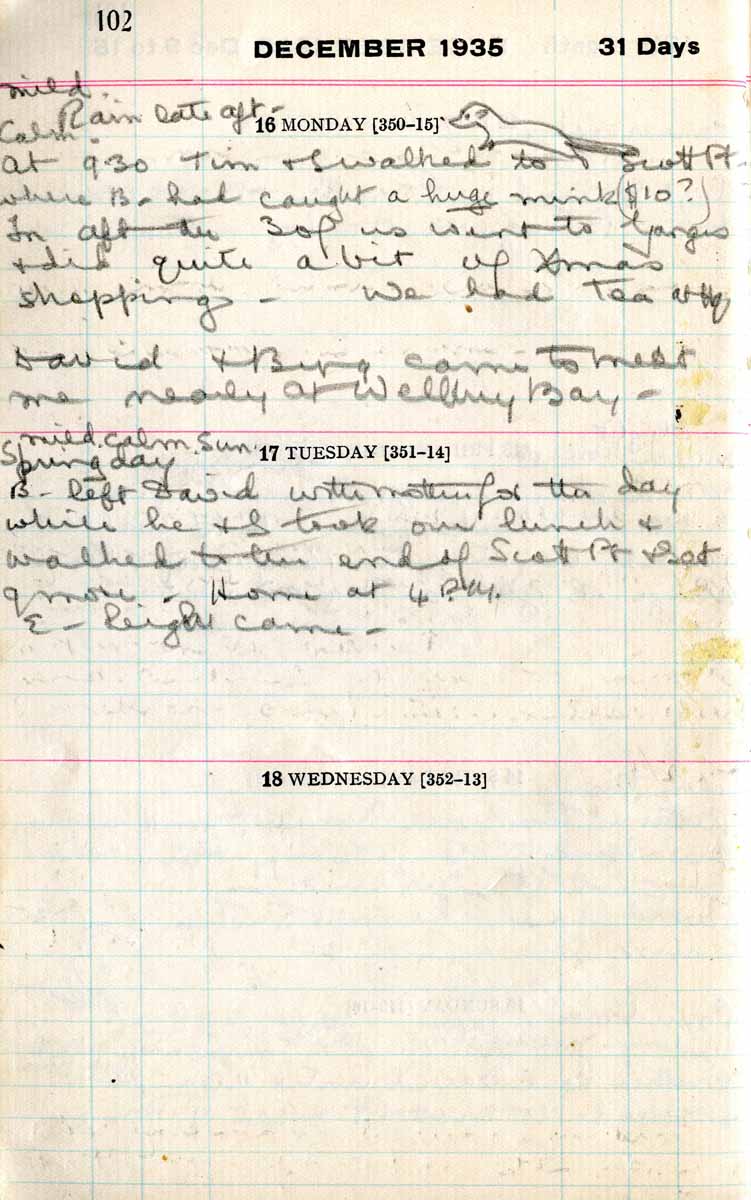 102
DECEMBER 1935 31 Days
mild.
Rain late aft-
Calm.
16 MONDAY [350-15]
At 9.30 Tim & I walked to Scott Pt.
where B- had caught a huge mink ($10?)
In aft the 3 of us went to Ganges
& did quite a bit of Xmas
shopping - We had Tea at Hq
David & Bing came to meet
me nearly at Welbury Bay -
mild. calm. Sun.
Spring day
17 TUESDAY [351-14]
B- left David with mother for the day
while he & I took our lunch &
walked to the end of Scott Pt & set
9 more - Home at 4 P.M.
E - Leigh came -
18 WEDNESDAY [352-13]